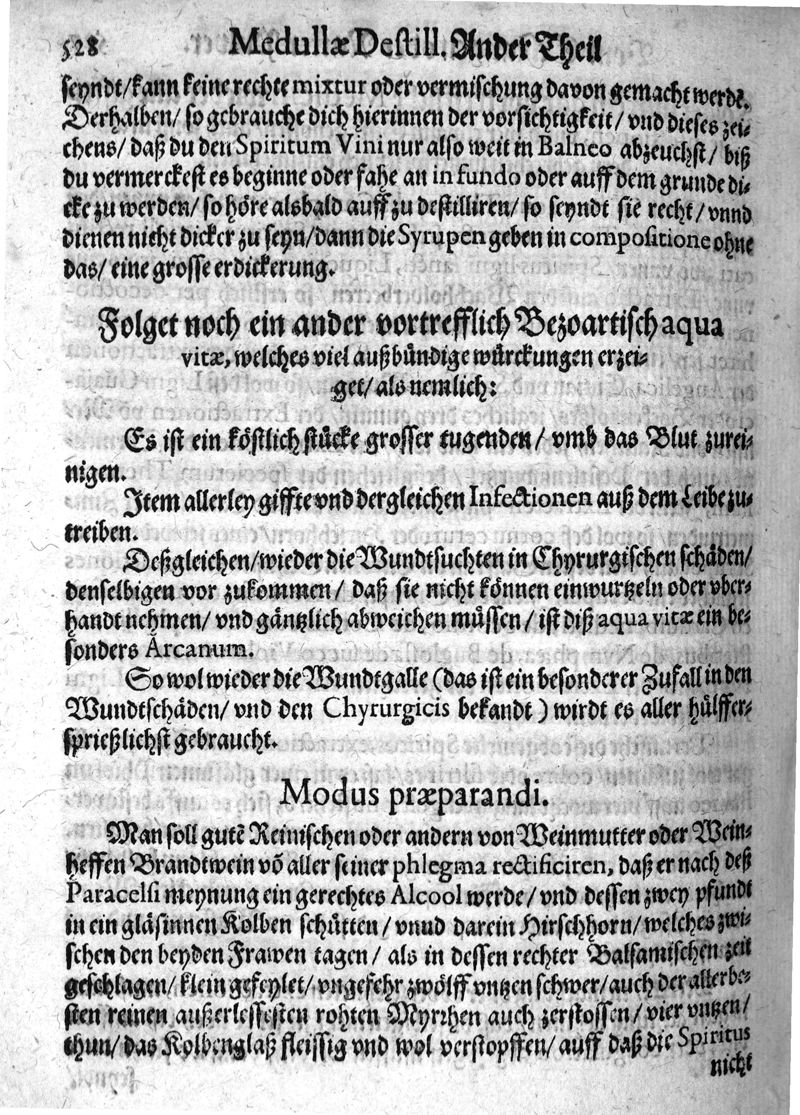 528 Medullæ Destill. Ander Theil
seyndt/kann keine rechte mixtur oder vermischung davon gemacht werdẽ.
Derhalben/ so gebrauche dich hierinnen der vorsichtigkeit/ vnd dieses zei-
chens/ daß du den Spiritum Vini nur also weit in Balneo abzeuchst/ biß
du vermerckest es beginne oder fahe an in fundo oder auff dem grunde di-
cke zu werden/ so höre alsbald auff zu destilliren/ so seyndt sie recht/ vnnd
dienen nicht dicker zu seyn/dann die Syrupen geben in compositione ohne
das/ eine grosse erdickerung.
Folget noch ein ander vortrefflich Bezoartisch aqua
vitæ, welches viel außbündige würckungen erzei-
get/ als nemlich:
Es ist ein köstlich stücke grosser tugenden/ vmb das Blut zurei-
nigen.
Item allerley giffte vnd dergleichen Infectionen auß dem Leibe zu-
treiben.
Deßgleichen/wieder die Wundtsuchten in Chyrurgischen schäden/
denselbigen vor zukommen/ daß sie nicht können einwurtzeln oder vber-
handt nehmen/ vnd gäntzlich abweichen müssen/ ist diß aqua vitæ ein be-
sonders Arcanum.
So wol wieder die Wundtgalle (das ist ein besonderer Zufall in den
Wundtschäden/ vnd den Chyrurgicis bekandt) wirdt es aller hülffer-
sprießlichst gebraucht.
Modus præparandi.
Man soll gutẽ Reinischen oder andern von Weinmutter oder Wein-
heffen Brandtwein võ aller seiner phlegma rectificiren, daß er nach deß
Paracelsi meynung ein gerechtes Alcool werde/ vnd dessen zwey pfundt
in ein gläsinnen Kolben schütten/ vnud darein Hirschhorn/ welches zwi-
schen den beyden Frawen tagen/ als in dessen rechter Balsamischen zeit
geschlagen/ klein gefeylet/ vngefehr zwölff vntzen schwer/ auch der allerbe-
sten reinen außerlessesten rohten Myrrhen auch zerstossen/ vier vntzen/
thun/ das Kolbenglaß fleissig vnd wol verstopffen/ auff daß die Spiritus
nicht